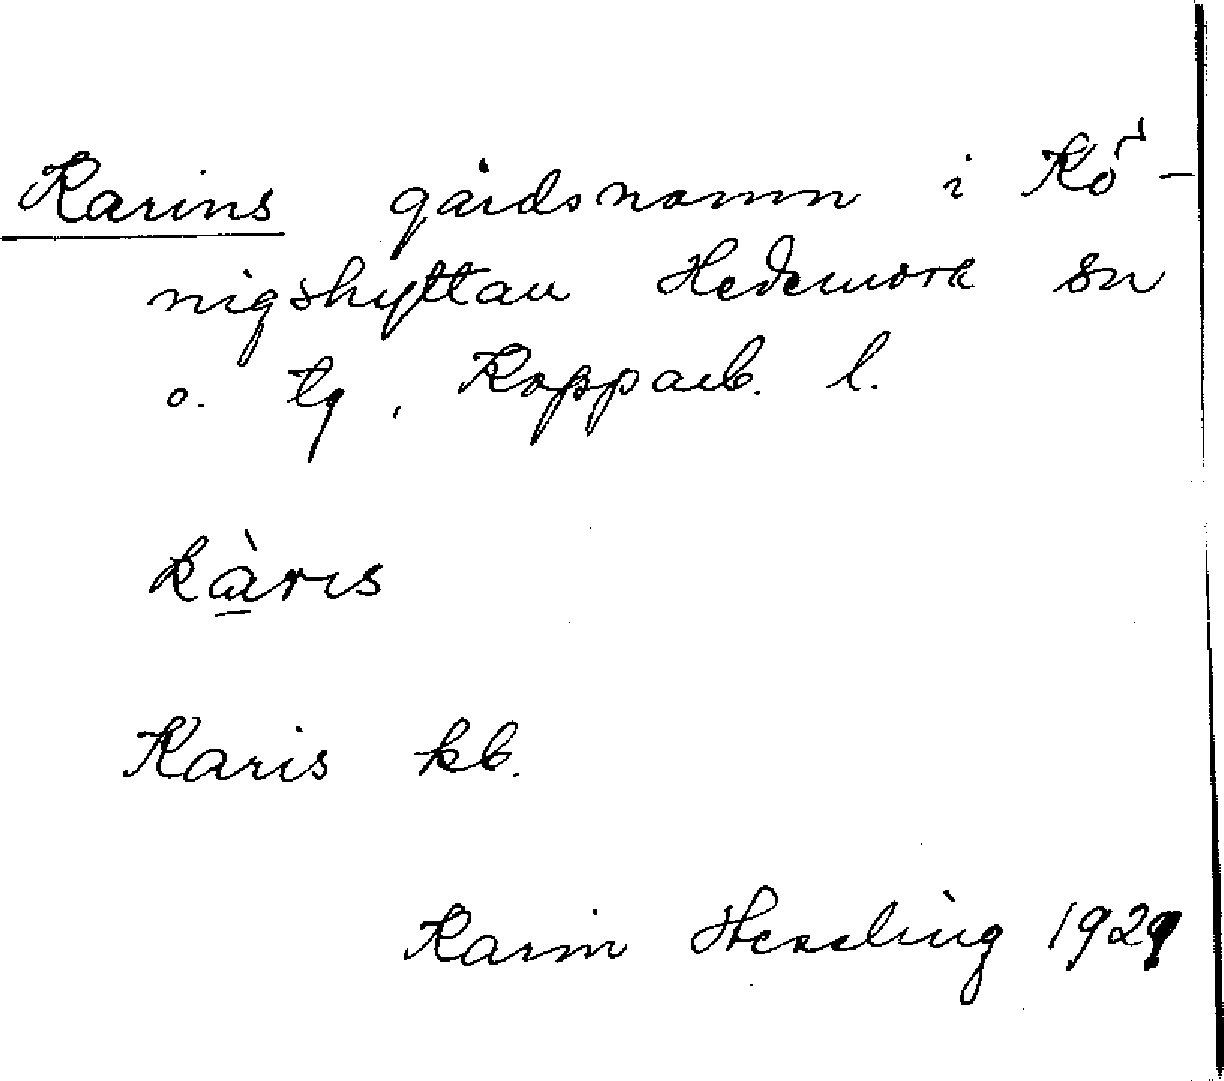 Karins gårdsnamn i Kö-
nigshyttan Hedemora sn
o. tg, Kopparb. l.
kàrɩs
Karis kb.
Karin Hessling 1929